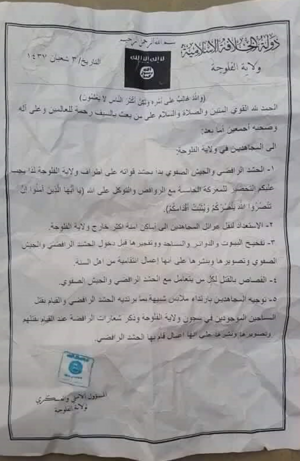 بسم الله الرحمن الرحيم
دولة الخلافة الإسلامية
ولاية الفلوجة
التاريخ/ ٣ شعبان ١٤٣٧
(والله غالب على أمره ولكن أكثر الناس لا يعلمون)
الحمد لله القوي المتين والصلاة والسلام على من بعث بالسيف رحمة للعالمين وعلى آله
وصحبه أجمعين اما بعد:
الى المجاهدين في ولاية الفلوجة:
١- الحشد الرافضي والجيش الصفوي بدا بحشد قواته على اطراف ولاية الفلوجة لذا يجب
عليكم التحضير للمعركة الحاسمة مع الروافض والتوكل على الله (يا أيها الذين آمنوا إن
تنصروا الله ينصركم ويثبت أقدامكم).
٢- الاستعداد لنقل عوائل المجاهدين الى اماكن امنة اكثر خارج ولاية الفلوجة.
٣- تفخيخ البيوت والدوائر والمساجد وتفجيرها قبل دخول الحشد الرافضي والجيش
الصفوي وتصويرها ونشرها على انها اعمال إنتقامية من اهل السنة.
٤- القصاص بالقتل لكل من يتعامل مع الحشد الرافضي والجيش الصفوي.
٥- توجيه المجاهدين بارتداء ملابس شبيهة بما يرتديه الحشد الرافضي والقيام بقتل
المساجين الموجودين في سجون ولاية الفلوجة وذكر شعارات الرافضة عند القيام بقتلهم
وتصويرها ونشرها على انها اعمال قام بها الحشد الرافضي.
المسؤول الامني والعسكري
لولاية الفلوجة